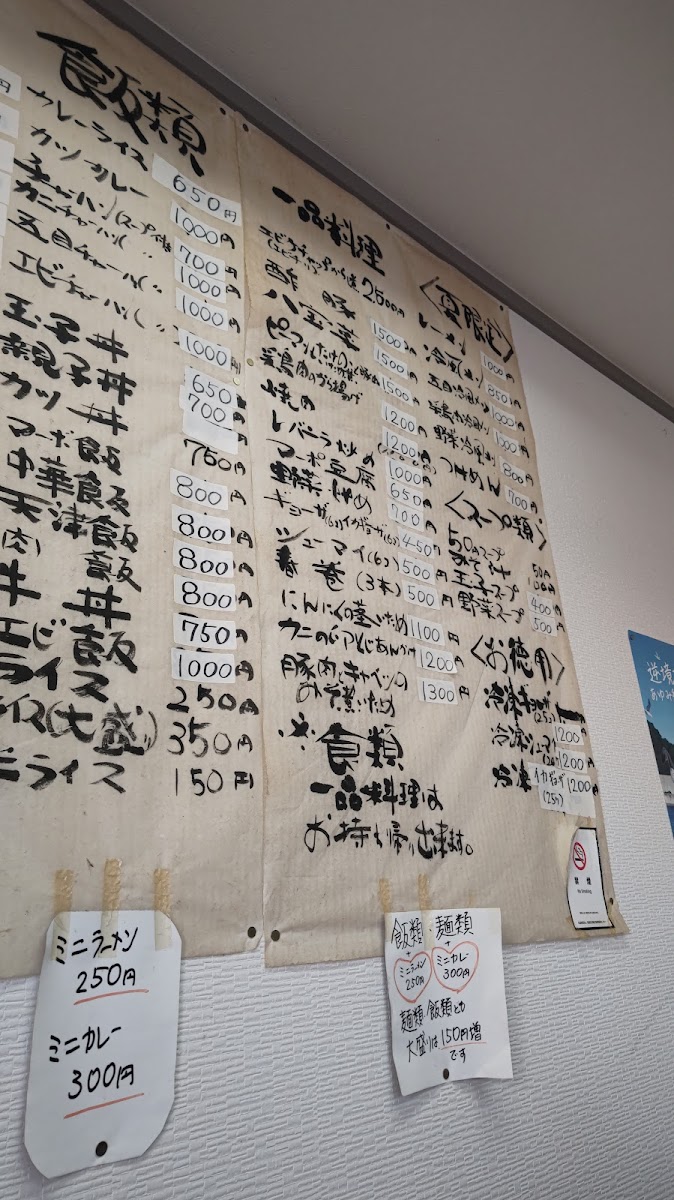 飯類
カレーライス 650円
カツカレー 1000円
チャーハン(スープ付 700円
カニチャーハン( 〃 1000円
五目チャーハン( 〃 1000円
エビチャーハン( 〃 1000円
玉子丼 650
親子丼 700
カツ丼 750円
マーボ飯 800円
中華飯 800円
天津飯 800円
(肉)飯 800円
牛丼 750円
エビ飯 1000円
ライス 250円
イス(大盛り) 350円
ニライス 150円
一品料理
2500円
酢豚 1500円
八宝菜 1500円
1500円
鶏肉のから揚げ 1200円
1200円
レバニラ炒め 1000円
マーボ豆腐 650円
野菜炒め 700円
ギョーザ(6)イカギョーザ(6) 450円
シューマイ(6) 500円
春巻(3本) 500円
にんにくの茎いため 1100円
1200円
豚肉とキャベツの
みそ煮いため 1300円
※飯類
一品料理は
お持ち帰り出来ます。
<夏限定>
1000円
850円
五目冷風メン 1000円
1000円
野菜冷風メン 800円
つけめん 700円
<スープ類>
スープ 50円
玉子スープ 400円
野菜スープ 500円
<お徳用>
冷凍ギョーザ(25ケ) 1200円
冷凍シューマイ 1200円
冷凍イカギョーザ(25ケ) 1200円
禁煙
No Smoking
ミニラーメン
250円
ミニカレー
300円
飯類・麺類
+ +
ミニラーメン 250円 ミニカレー 300円
麺類・飯類とも
大盛りは150円増
です
逆境